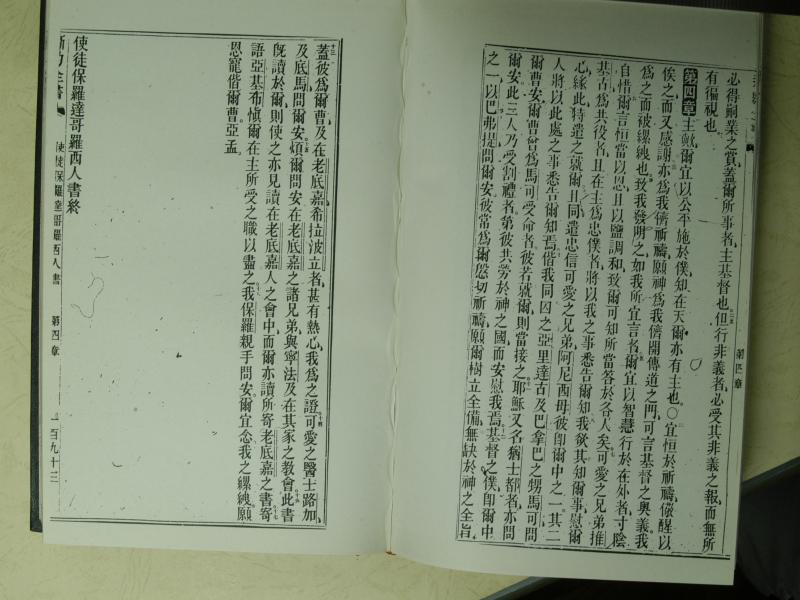 必得嗣業之賞蓋爾所事者主基督也但行非義者必受其非義之報而無所
有徧視也
第四章主歟爾宜以公平施於僕知在天爾亦有主也〇宜恒於祈禱儆醒以
俟之而又感謝亦為我儕祈禱願神為我儕開傳道之門可言基督之奧義我
為之而被縲絏也致我發明之如我所宜言者爾宜以智慧行於在外者寸陰
自惜爾言恒當以恩且以鹽調和致爾可知所當答於各人矣可愛之兄弟推
基古為共役者且在主為忠僕者將以我之事悉告爾知我欲其知爾事慰爾
心緣此特遣之就爾且同遣忠信可愛之兄弟阿尼西母彼即爾中之一其二
人將以此處之事悉告爾知焉偕我同囚之亞里達古及巴拿巴之甥馬可問
爾曹安爾曹曾為馬可受命者彼若就爾則當接之耶穌又名猶士都者亦問
爾安此三人乃受割禮者第彼共勞於神之國而安慰我焉基督之僕即爾中
之一以巴弗提問爾安彼常為爾慇切祈禱願爾樹立全備無缺於神之全旨
第四章
蓋彼為爾曹及在老底嘉希拉波立者甚有熱心我為之證可愛之醫士路加
及底馬問爾安煩爾問安在老底嘉之諸兄弟與寧法及在其家之教會此書
既讀於爾則使之亦見讀在老底嘉人之會中而爾亦讀所寄老底嘉之書寄
語亞基布愼爾在主所受之職以盡之我保羅親手問安爾宜念我之縲絏願
恩寵偕爾曹亞孟
使徒保羅達哥羅西人書終
使徒保羅達哥羅西人書 第四章 一百九十三